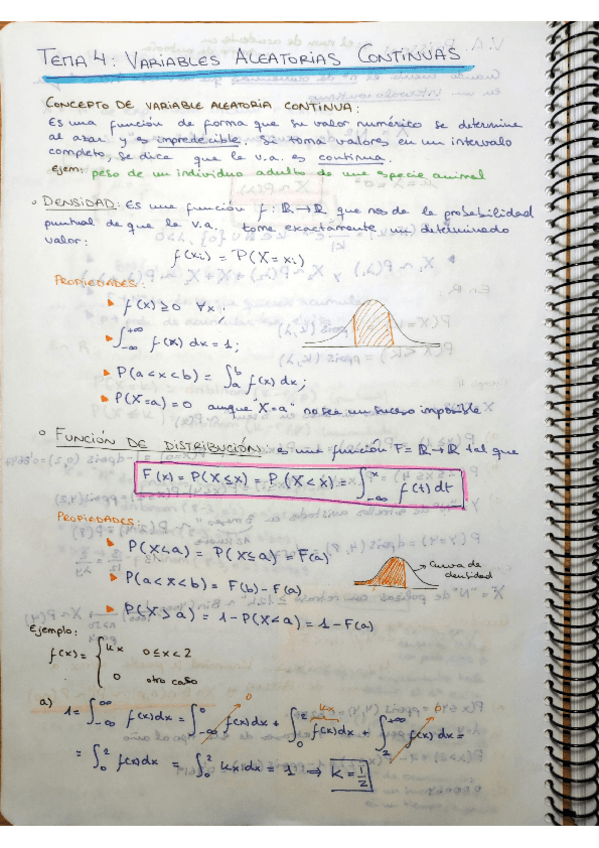 TEMA 4: VARIABLES ALEATORIAS CONTINUAS
CONCEPTO DE VARIABLE ALEATORIA CONTINUA:
Es una función de forma que su valor numérico se determina
al azar y es impredecible. Si toma valores en un intervalo
completo, se dice que la v.a. es continua.
Ejem: peso de un individuo adulto de una especie animal
DENSIDAD: Es una función f: ℝ→ℝ que nos da la probabilidad
puntual de que la v.a. tome exactamente un determinado
valor:
f(xi) = P(X = xi)
PROPIEDADES:
▸ f(x) ≥ 0 ∀x;
▸ ∫_{-∞}^{+∞} f(x) dx = 1;
▸ P(a < x < b) = ∫_a^b f(x) dx;
▸ P(X=a) = 0 aunque "X=a" no sea un suceso imposible
FUNCIÓN DE DISTRIBUCIÓN: es una función F = ℝ→ℝ tal que
F(x) = P(X ≤ x) = P(X < x) = ∫_{-∞}^{x} f(t) dt
PROPIEDADES:
▸ P(X < a) = P(X ≤ a) = F(a)
▸ P(a < X < b) = F(b) - F(a)
Curva de
densidad
▸ P(X > a) = 1 - P(X < a) = 1 - F(a)
Ejemplo:
f(x) = { kx 0 ≤ x < 2
0 otro caso
a) 1 = ∫_{-∞}^{∞} f(x) dx = ∫_{-∞}^{0} f(x) dx + ∫_0^2 f(x) dx + ∫_2^{+∞} f(x) dx =
0 kx 0
= ∫_0^2 f(x) dx = ∫_0^2 kx dx = 1 ⇒ k = 1/2